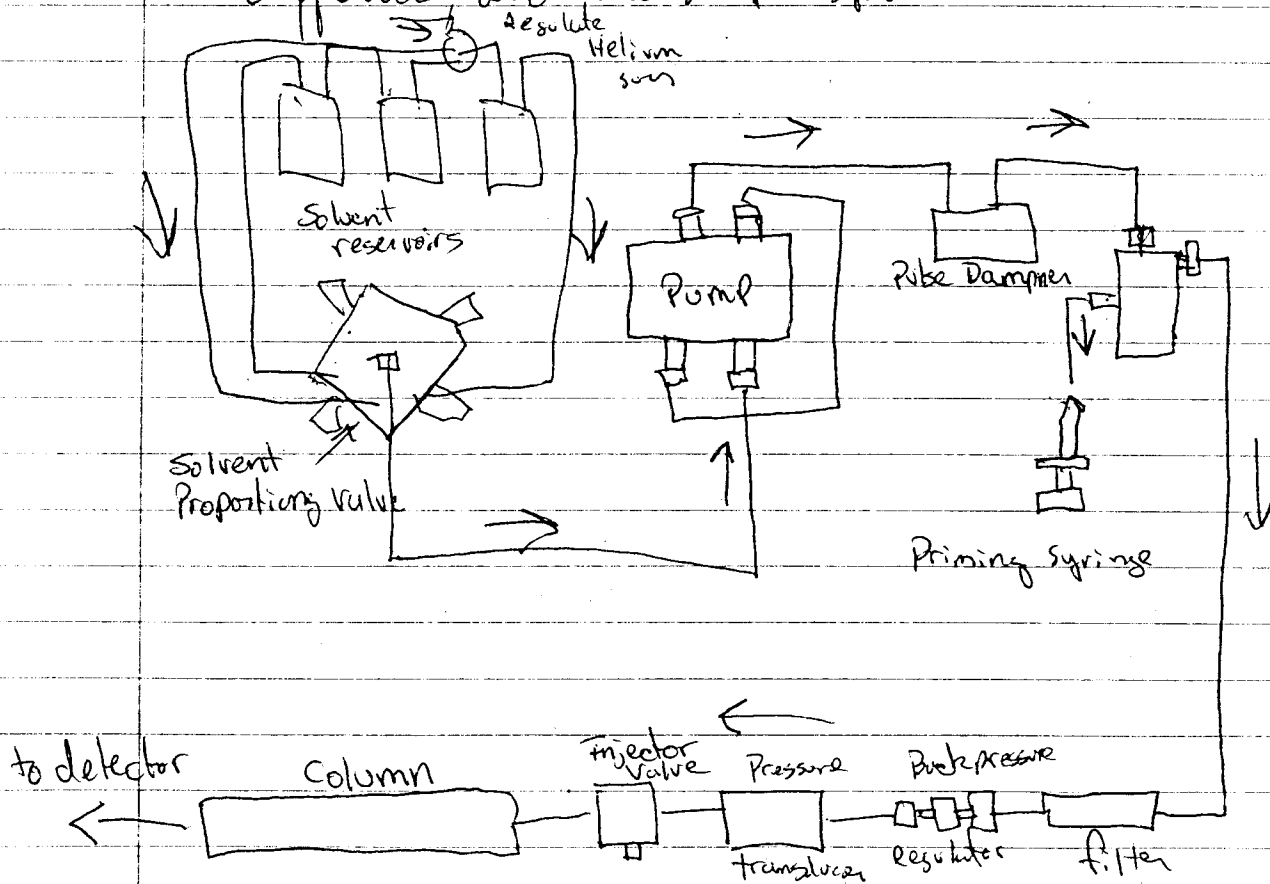 Regulate
Helium
Solvent
reservoirs
Pump
Pulse Dampner
Solvent
Proportiong Valve
Priming Syringe
to detector
Column
Injector
Valve
Pressure
transducer
Backpressure
regulator
filter